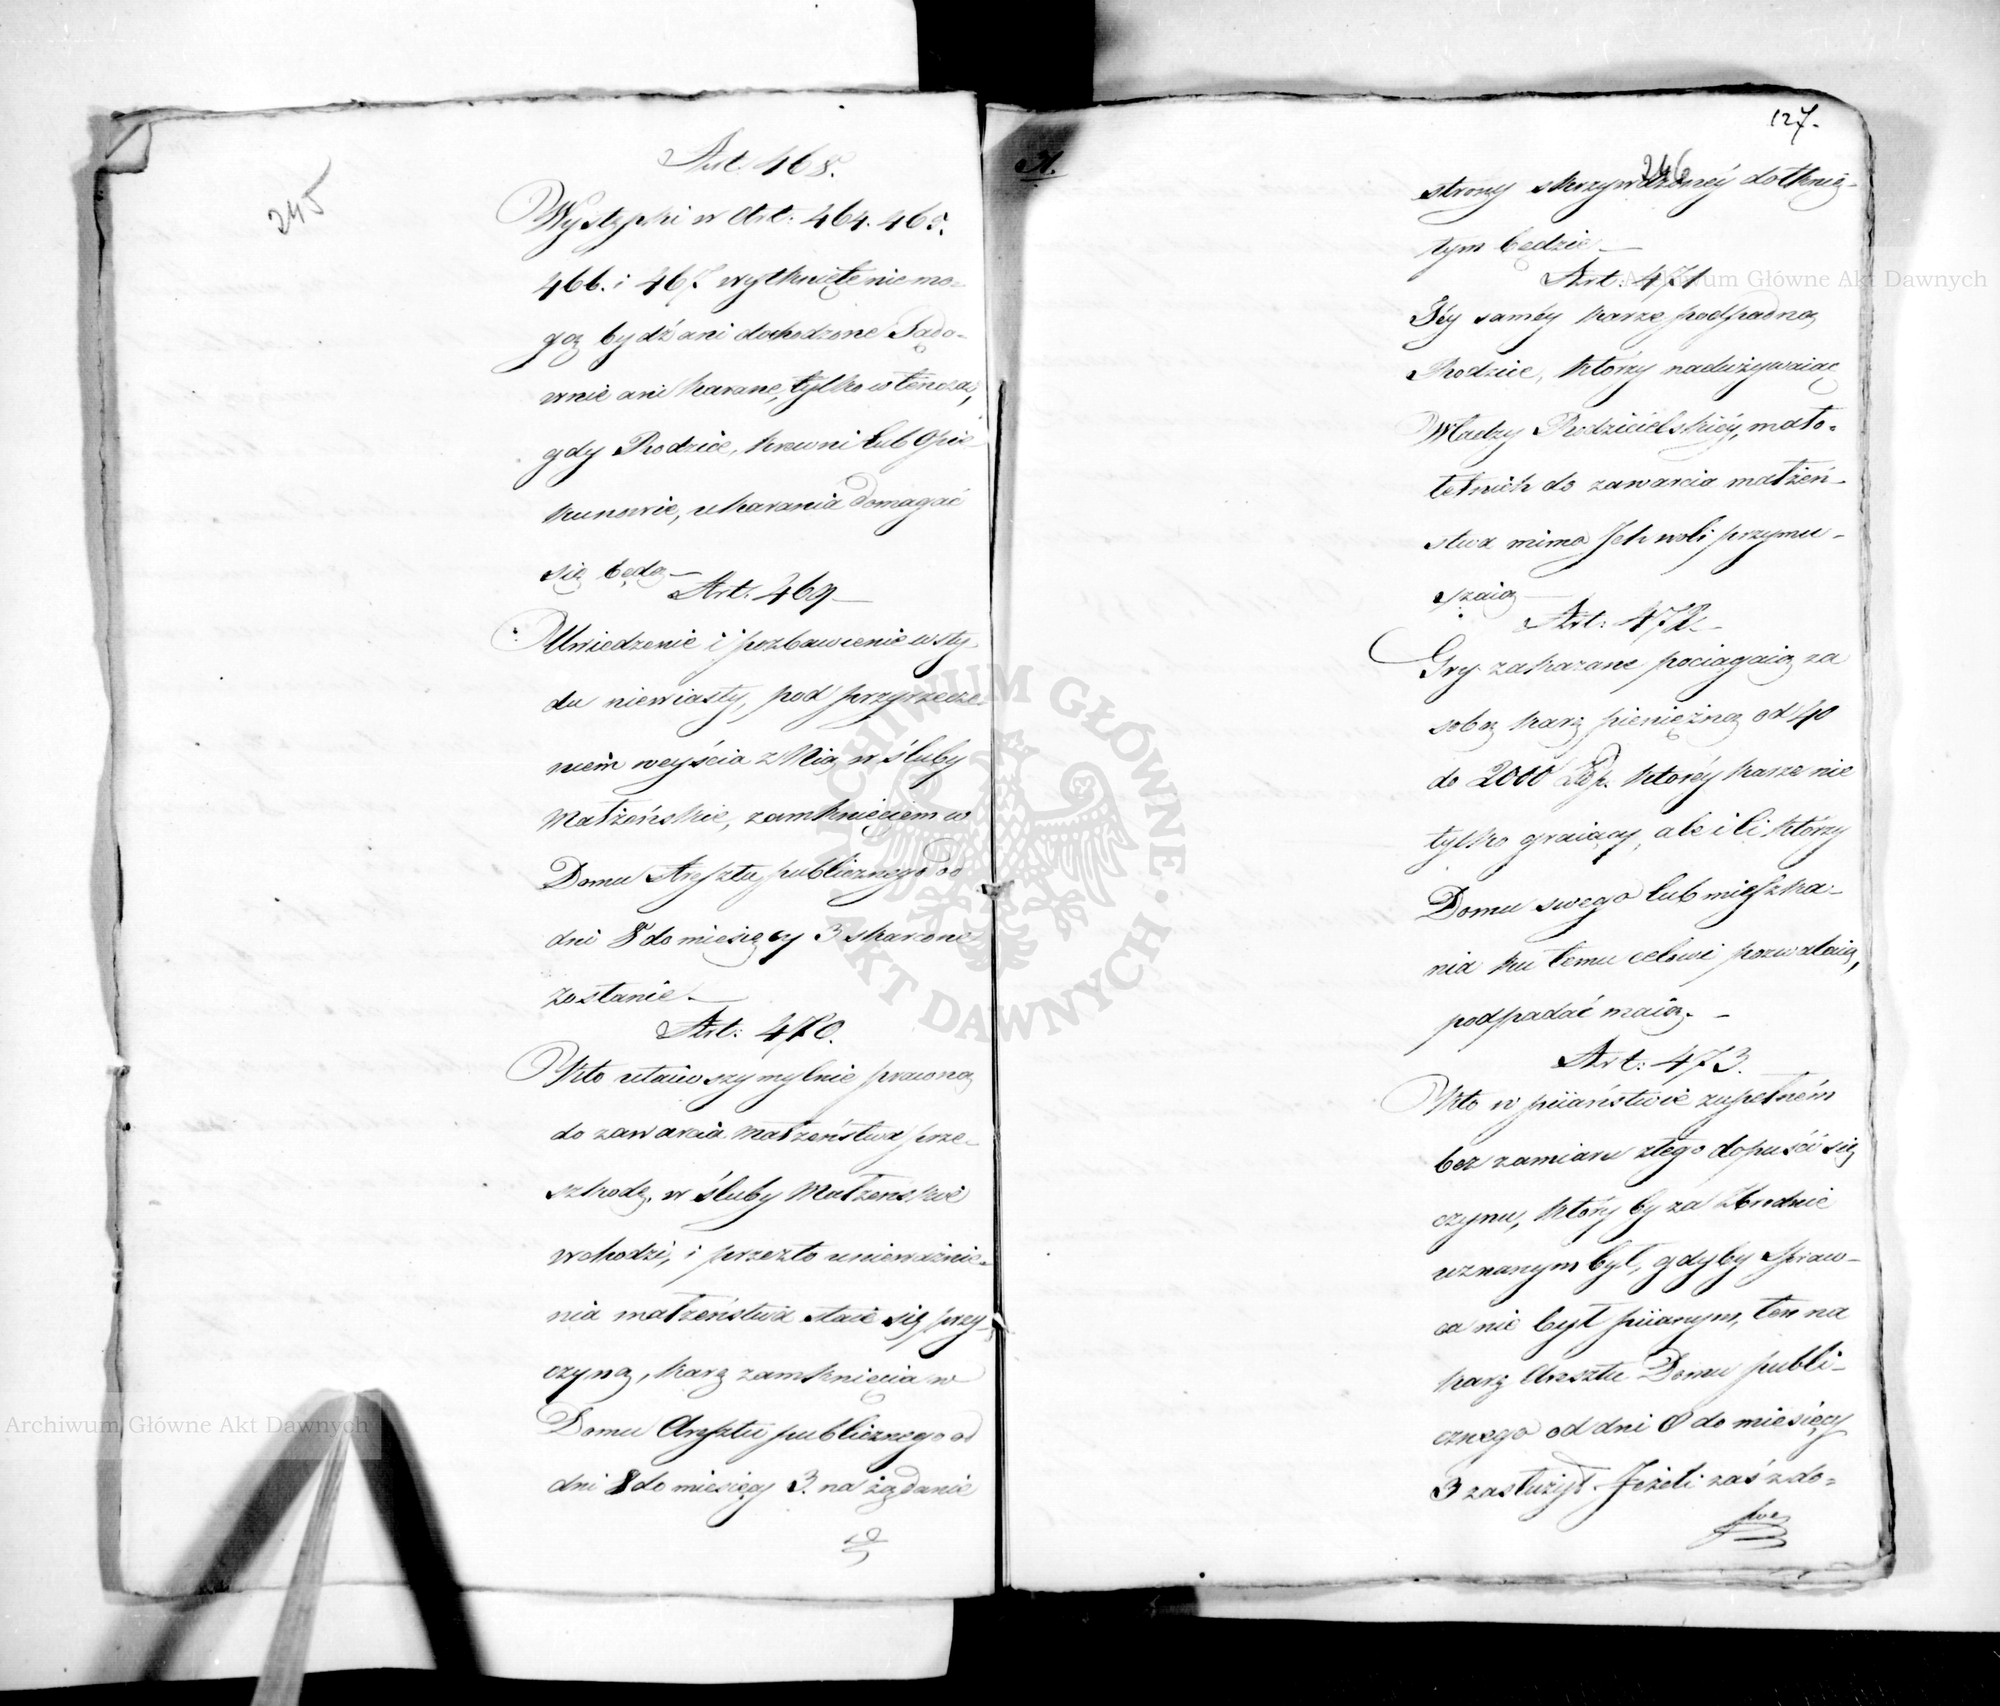 245
Art. 468.
Występki w Art. 464. 465.
466. i 467 wytknięte nie mo-
gą bydź ani dochodzone Sądo-
wnie ani karane, tylko wtenczas,
gdy Rodzice, krewni lub Opie
kunowie, ukarania domagać
się będą —
Art. 469 —
Uwiedzenie i pozbawienie wsty-
du niewiasty, pod przyrzecze-
niem weyścia z Nią w śluby
Małżeńskie, zamknięciem w
Domu Aresztu publicznego od
dni 8 do miesięcy 3 skarcone
zostanie. —
Art: 470.
Kto utaiwszy mylnie prawną
do zawarcia małżeństwa prze-
szkodę, w śluby Małżeńskie
wchodzi, i przezto unieważnie-
nia małżeństwa staie się przy-
czyną, karą zamknięcia w
Domu Aresztu publicznego od
dni 8 do miesięcy 3. na żądanie
127.
246
strony skrzywdzonéy dotknię-
tym będzie —
Art: 471
Téy saméy karze podpadną
Rodzice, którzy nadużywaiąc
Władzy Rodzicielskiéy, mało-
letnich do zawarcia małżeń-
stwa mimo Ich woli przymu-
szaią —
Art: 472. —
Gry zakazane pociągaią za
sobą karę pieniężną od 40
do 2000 Złp. któréy karze nie
tylko graiący, ale i Ci którzy
Domu swego lub mięszka-
nia ku temu celowi pozwalaią,
podpadać maią. —
Art: 473.
Kto w piiaństwie zupełném
bez zamiaru złego dopuści się
czynu, który by za Zbrodnie
uznanym był, gdyby Spraw-
ca nie był piianym, ten na
karę Aresztu Domu publi-
cznego od dni 8 do miesięcy
3 zasłużył. Jeżeli zaś z do-
Archiwum Główne Akt Dawnych
Archiwum Główne Akt Dawnych
ARCHIWUM GŁÓWNE · AKT DAWNYCH ·